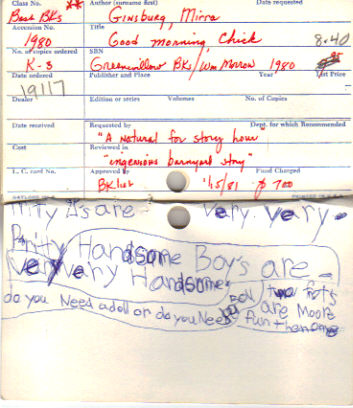 Class No. Author (surname first) Date requested
Best Bks Ginsburg, Mirra
Accession No. Title
1980 Good morning, Chick 8.40
No. of copies ordered SBN
K-3 Greenwillow Bks/Wm Morrow 1980
Date ordered Publisher and Place Year List Price
19117
Dealer Edition or series Volumes No. of Copies
Date received Requested by Dept. for which Recommended
"A Natural for story hour
Cost Reviewed in
"ingenious barnyard story"
L. C. card No. Approved by Fund Charged
BKlist 1/15/81 p 700
are very very
Prity Handsome Boy's are
very very Handsome
do you Need a doll or do you Need
Doll two
are Moore
fun then one